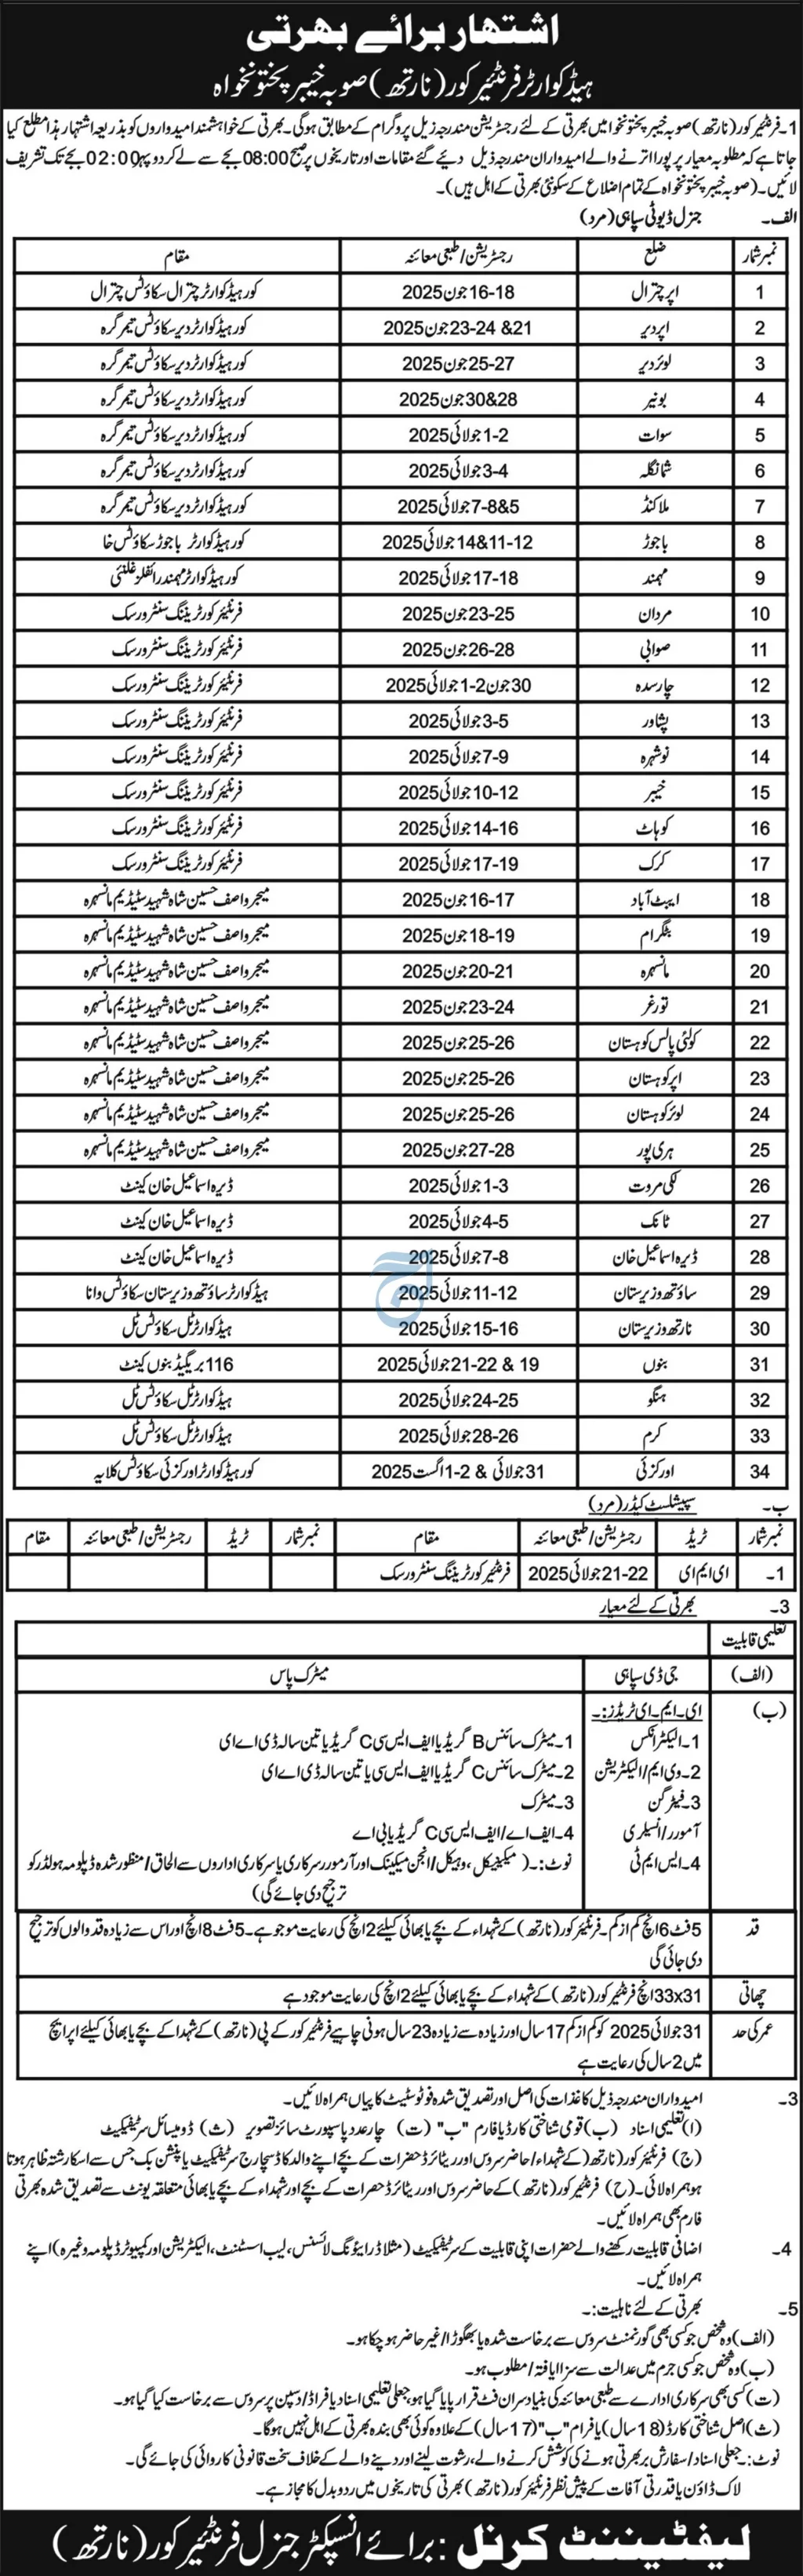 اشتہار برائے بھرتی
ہیڈکوارٹر فرنٹیئر کور (نارتھ) صوبہ خیبر پختونخواہ
1۔ فرنٹیئر کور (نارتھ) صوبہ خیبر پختونخوا میں بھرتی کے لئے رجسٹریشن مندرجہ ذیل پروگرام کے مطابق ہوگی۔ بھرتی کے خواہشمند امیدواروں کو بذریعہ اشتہار ہذا مطلع کیا
جاتا ہے کہ مطلوبہ معیار پر پورا اترنے والے امیدواران مندرجہ ذیل دیئے گئے مقامات اور تاریخوں پر صبح 08:00 بجے سے لے کر دوپہر 02:00 بجے تک تشریف
لائیں۔ (صوبہ خیبر پختونخواہ کے تمام اضلاع کے سکونتی بھرتی کے اہل ہیں)۔
الف۔ جنرل ڈیوٹی سپاہی (مرد)
نمبر شمار ضلع رجسٹریشن/طبعی معائنہ مقام
1 اپر چترال 16-18 جون 2025 کور ہیڈ کوارٹر چترال سکاؤٹس چترال
2 اپر دیر 21& 23-24 جون 2025 کور ہیڈ کوارٹر دیر سکاؤٹس تیمرگرہ
3 لوئر دیر 25-27 جون 2025 کور ہیڈ کوارٹر دیر سکاؤٹس تیمرگرہ
4 بونیر 28&30 جون 2025 کور ہیڈ کوارٹر دیر سکاؤٹس تیمرگرہ
5 سوات 1-2 جولائی 2025 کور ہیڈ کوارٹر دیر سکاؤٹس تیمرگرہ
6 شانگلہ 3-4 جولائی 2025 کور ہیڈ کوارٹر دیر سکاؤٹس تیمرگرہ
7 ملاکنڈ 5&7-8 جولائی 2025 کور ہیڈ کوارٹر دیر سکاؤٹس تیمرگرہ
8 باجوڑ 11-12&14 جولائی 2025 کور ہیڈ کوارٹر باجوڑ سکاؤٹس خا
9 مہمند 17-18 جولائی 2025 کور ہیڈ کوارٹر مہمند رائفلز غلنئی
10 مردان 23-25 جون 2025 فرنٹیئر کور ٹریننگ سنٹر ورسک
11 صوابی 26-28 جون 2025 فرنٹیئر کور ٹریننگ سنٹر ورسک
12 چارسدہ 30 جون 2-1 جولائی 2025 فرنٹیئر کور ٹریننگ سنٹر ورسک
13 پشاور 3-5 جولائی 2025 فرنٹیئر کور ٹریننگ سنٹر ورسک
14 نوشہرہ 7-9 جولائی 2025 فرنٹیئر کور ٹریننگ سنٹر ورسک
15 خیبر 10-12 جولائی 2025 فرنٹیئر کور ٹریننگ سنٹر ورسک
16 کوہاٹ 14-16 جولائی 2025 فرنٹیئر کور ٹریننگ سنٹر ورسک
17 کرک 17-19 جولائی 2025 فرنٹیئر کور ٹریننگ سنٹر ورسک
18 ایبٹ آباد 16-17 جون 2025 میجر واصف حسین شاہ شہید سٹیڈیم مانسہرہ
19 بٹگرام 18-19 جون 2025 میجر واصف حسین شاہ شہید سٹیڈیم مانسہرہ
20 مانسہرہ 20-21 جون 2025 میجر واصف حسین شاہ شہید سٹیڈیم مانسہرہ
21 تورغر 23-24 جون 2025 میجر واصف حسین شاہ شہید سٹیڈیم مانسہرہ
22 کولئی پالس کوہستان 25-26 جون 2025 میجر واصف حسین شاہ شہید سٹیڈیم مانسہرہ
23 اپر کوہستان 25-26 جون 2025 میجر واصف حسین شاہ شہید سٹیڈیم مانسہرہ
24 لوئر کوہستان 25-26 جون 2025 میجر واصف حسین شاہ شہید سٹیڈیم مانسہرہ
25 ہری پور 27-28 جون 2025 میجر واصف حسین شاہ شہید سٹیڈیم مانسہرہ
26 لکی مروت 1-3 جولائی 2025 ڈیرہ اسماعیل خان کینٹ
27 ٹانک 4-5 جولائی 2025 ڈیرہ اسماعیل خان کینٹ
28 ڈیرہ اسماعیل خان 7-8 جولائی 2025 ڈیرہ اسماعیل خان کینٹ
29 ساؤتھ وزیرستان 11-12 جولائی 2025 ہیڈ کوارٹر ساؤتھ وزیرستان سکاؤٹس وانا
30 نارتھ وزیرستان 15-16 جولائی 2025 ہیڈ کوارٹر ٹل سکاؤٹس ٹل
31 بنوں 19 & 21-22 جولائی 2025 116 بریگیڈ بنوں کینٹ
32 ہنگو 24-25 جولائی 2025 ہیڈ کوارٹر ٹل سکاؤٹس ٹل
33 کرم 28-26 جولائی 2025 ہیڈ کوارٹر ٹل سکاؤٹس ٹل
34 اورکزئی 31 جولائی & 1-2 اگست 2025 کور ہیڈ کوارٹر اورکزئی سکاؤٹس کلایہ
ب۔ سپیشلسٹ کیڈر (مرد)
نمبر شمار ٹریڈ رجسٹریشن/طبعی معائنہ مقام نمبر شمار ٹریڈ رجسٹریشن/طبعی معائنہ مقام
1۔ ای ایم ای 21-22 جولائی 2025 فرنٹیئر کور ٹریننگ سنٹر ورسک
3۔ بھرتی کے لئے معیار
تعلیمی قابلیت
(الف) جی ڈی سپاہی میٹرک پاس
(ب) ای۔ایم۔ای ٹریڈز:۔
1۔ الیکٹرانکس 1۔ میٹرک سائنس B گریڈ یا ایف ایس سی C گریڈ یا تین سالہ ڈی اے ای
2۔ وی ایم/الیکٹریشن 2۔ میٹرک سائنس C گریڈ یا ایف ایس سی یا تین سالہ ڈی اے ای
3۔ فیٹرگن 3۔ میٹرک
آمورر/انسیلری 4۔ ایف اے/ایف ایس سی C گریڈ یا بی اے
4۔ ایس ایم ٹی نوٹ:۔ (میکینیکل، وہیکل/انجن میکینک اور آرمورر سرکاری یا سرکاری اداروں سے الحاق/منظور شدہ ڈپلومہ ہولڈر کو
ترجیح دی جائے گی)
قد 5 فٹ 6 انچ کم از کم۔ فرنٹیئر کور (نارتھ) کے شہداء کے بچے یا بھائی کیلئے 2 انچ کی رعایت موجود ہے۔ 5 فٹ 8 انچ اور اس سے زیادہ قد والوں کو ترجیح
دی جائی گی
چھاتی 33x31 انچ فرنٹیئر کور (نارتھ) کے شہداء کے بچے یا بھائی کیلئے 2 انچ کی رعایت موجود ہے
عمر کی حد 31 جولائی 2025 کو کم از کم 17 سال اور زیادہ سے زیادہ 23 سال ہونی چاہیے فرنٹیئر کور کے پی (نارتھ) کے شہدا کے بچے یا بھائی کیلئے اپر ایج
میں 2 سال کی رعایت ہے
3۔ امیدواران مندرجہ ذیل کاغذات کی اصل اور تصدیق شدہ فوٹو سٹیٹ کاپیاں ہمراہ لائیں۔
(ا) تعلیمی اسناد (ب) قومی شناختی کارڈ یا فارم "ب" (ت) چار عدد پاسپورٹ سائز تصویر (ث) ڈومیسائل سرٹیفکیٹ
(ج) فرنٹیئر کور (نارتھ) کے شہداء/حاضر سروس اور ریٹائرڈ حضرات کے بچے اپنے والد کا ڈسچارج سرٹیفکیٹ یا پنشن بک جس سے اسکا رشتہ ظاہر ہوتا
ہو ہمراہ لائی۔ (ح) فرنٹیئر کور (نارتھ) کے حاضر سروس اور ریٹائرڈ حضرات کے بچے اور شہداء کے بچے یا بھائی متعلقہ یونٹ سے تصدیق شدہ بھرتی
فارم بھی ہمراہ لائیں۔
4۔ اضافی قابلیت رکھنے والے حضرات اپنی قابلیت کے سرٹیفکیٹ (مثلا ڈرائیونگ لائسنس، لیب اسسٹنٹ، الیکٹریشن اور کمپیوٹر ڈپلومہ وغیرہ) اپنے
ہمراہ لائیں۔
5۔ بھرتی کے لئے نااہلیت:۔
(الف) وہ شخص جو کسی بھی گورنمنٹ سروس سے برخاست شدہ یا بھگوڑا/غیر حاضر ہو چکا ہو۔
(ب) وہ شخص جو کسی جرم میں عدالت سے سزا یافتہ/مطلوب ہو۔
(ت) کسی بھی سرکاری ادارے سے طبعی معائنہ کی بنیاد سران فٹ قرار پایا گیا ہو، جعلی تعلیمی اسناد یا فراڈ/ڈسپلن پر سروس سے برخاست کیا گیا ہو۔
(ث) اصل شناختی کارڈ (18 سال) یا فرام "ب" (17 سال) کے علاوہ کوئی بھی بندہ بھرتی کے اہل نہیں ہوگا۔
نوٹ:۔ جعلی اسناد/سفارش پر بھرتی ہونے کی کوشش کرنے والے، رشوت لینے اور دینے والے کے خلاف سخت قانونی کاروائی کی جائے گی۔
لاک ڈاؤن یا قدرتی آفات کے پیش نظر فرنٹیئر کور (نارتھ) بھرتی کی تاریخوں میں ردوبدل کا مجاز ہے۔
لیفٹیننٹ کرنل : برائے انسپکٹر جنرل فرنٹیئر کور (نارتھ)